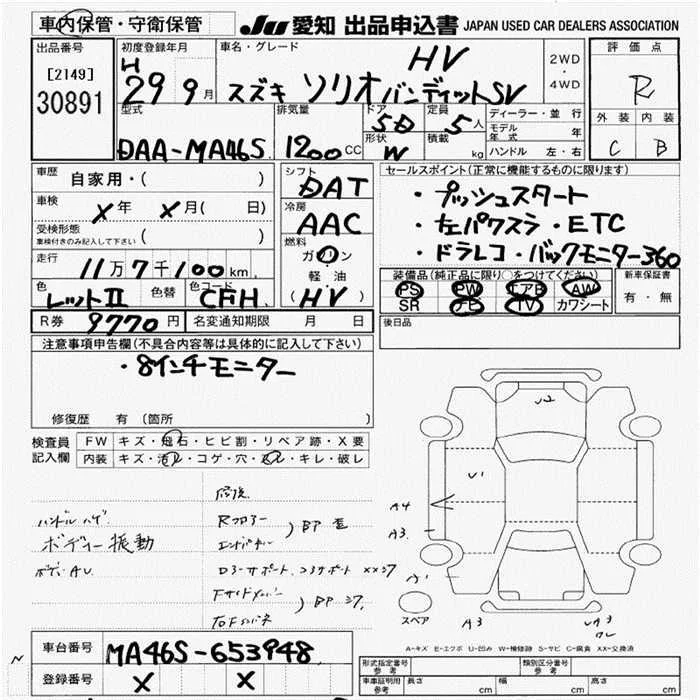 車内保管・守衛保管
JU 愛知 出品申込書 JAPAN USED CAR DEALERS ASSOCIATION
出品番号
[2149]
30891
初度登録年月
H
29 9月
車名・グレード
HV
スズキ ソリオバンディットSV
2WD
・
4WD
評価点
R
外装 内装
C B
型式
DAA-MA46S
排気量
1200 CC
ドア
5D
形状
W
定員
5人
積載
kg
ディーラー・並行
モデル年式 年
ハンドル 左・右
車歴 自家用・( )
車検 X年 X月( 日)
受検形態
車検付きのみ記入して下さい ( )
走行
11万7千100km
シフト
DAT
冷房
AAC
燃料
ガソリン
軽油
( HV )
セールスポイント(正常に機能するものに限ります)
・プッシュスタート
・左パワスラ・ETC
・ドラレコ・バックモニター360
色
レットII
色替
色コード
CFH
装備品(純正品に限り○をつけてください)
PS PW エアB AW
SR ナビ TV カワシート
新車保証書
有・無
R券 9770円
名変通知期限 月 日
後日品
注意事項申告欄(不具合内容等は具体的に記入して下さい)
・8インチモニター
修復歴 有 (箇所
検査員記入欄
FW キズ・飛石・ヒビ割・リペア跡・X要
内装 キズ・汚レ・コゲ・穴・スレ・キレ・破レ
修復
ハンドルハゲ
Rフロアー
ボディー振動
エンドパネル
)BP 歪
ボディAU
)BP
U2
U1
A4
A3
A3
スペア
A-キズ E-エクボ U-凹み W-補修跡 S-サビ C-腐食 XX-交換済
車台番号 MA46S-653948
登録番号 X X
形式指定番号
参考
類別区分番号
参考
車庫証明用
参考
長さ cm
幅 cm
高さ cm